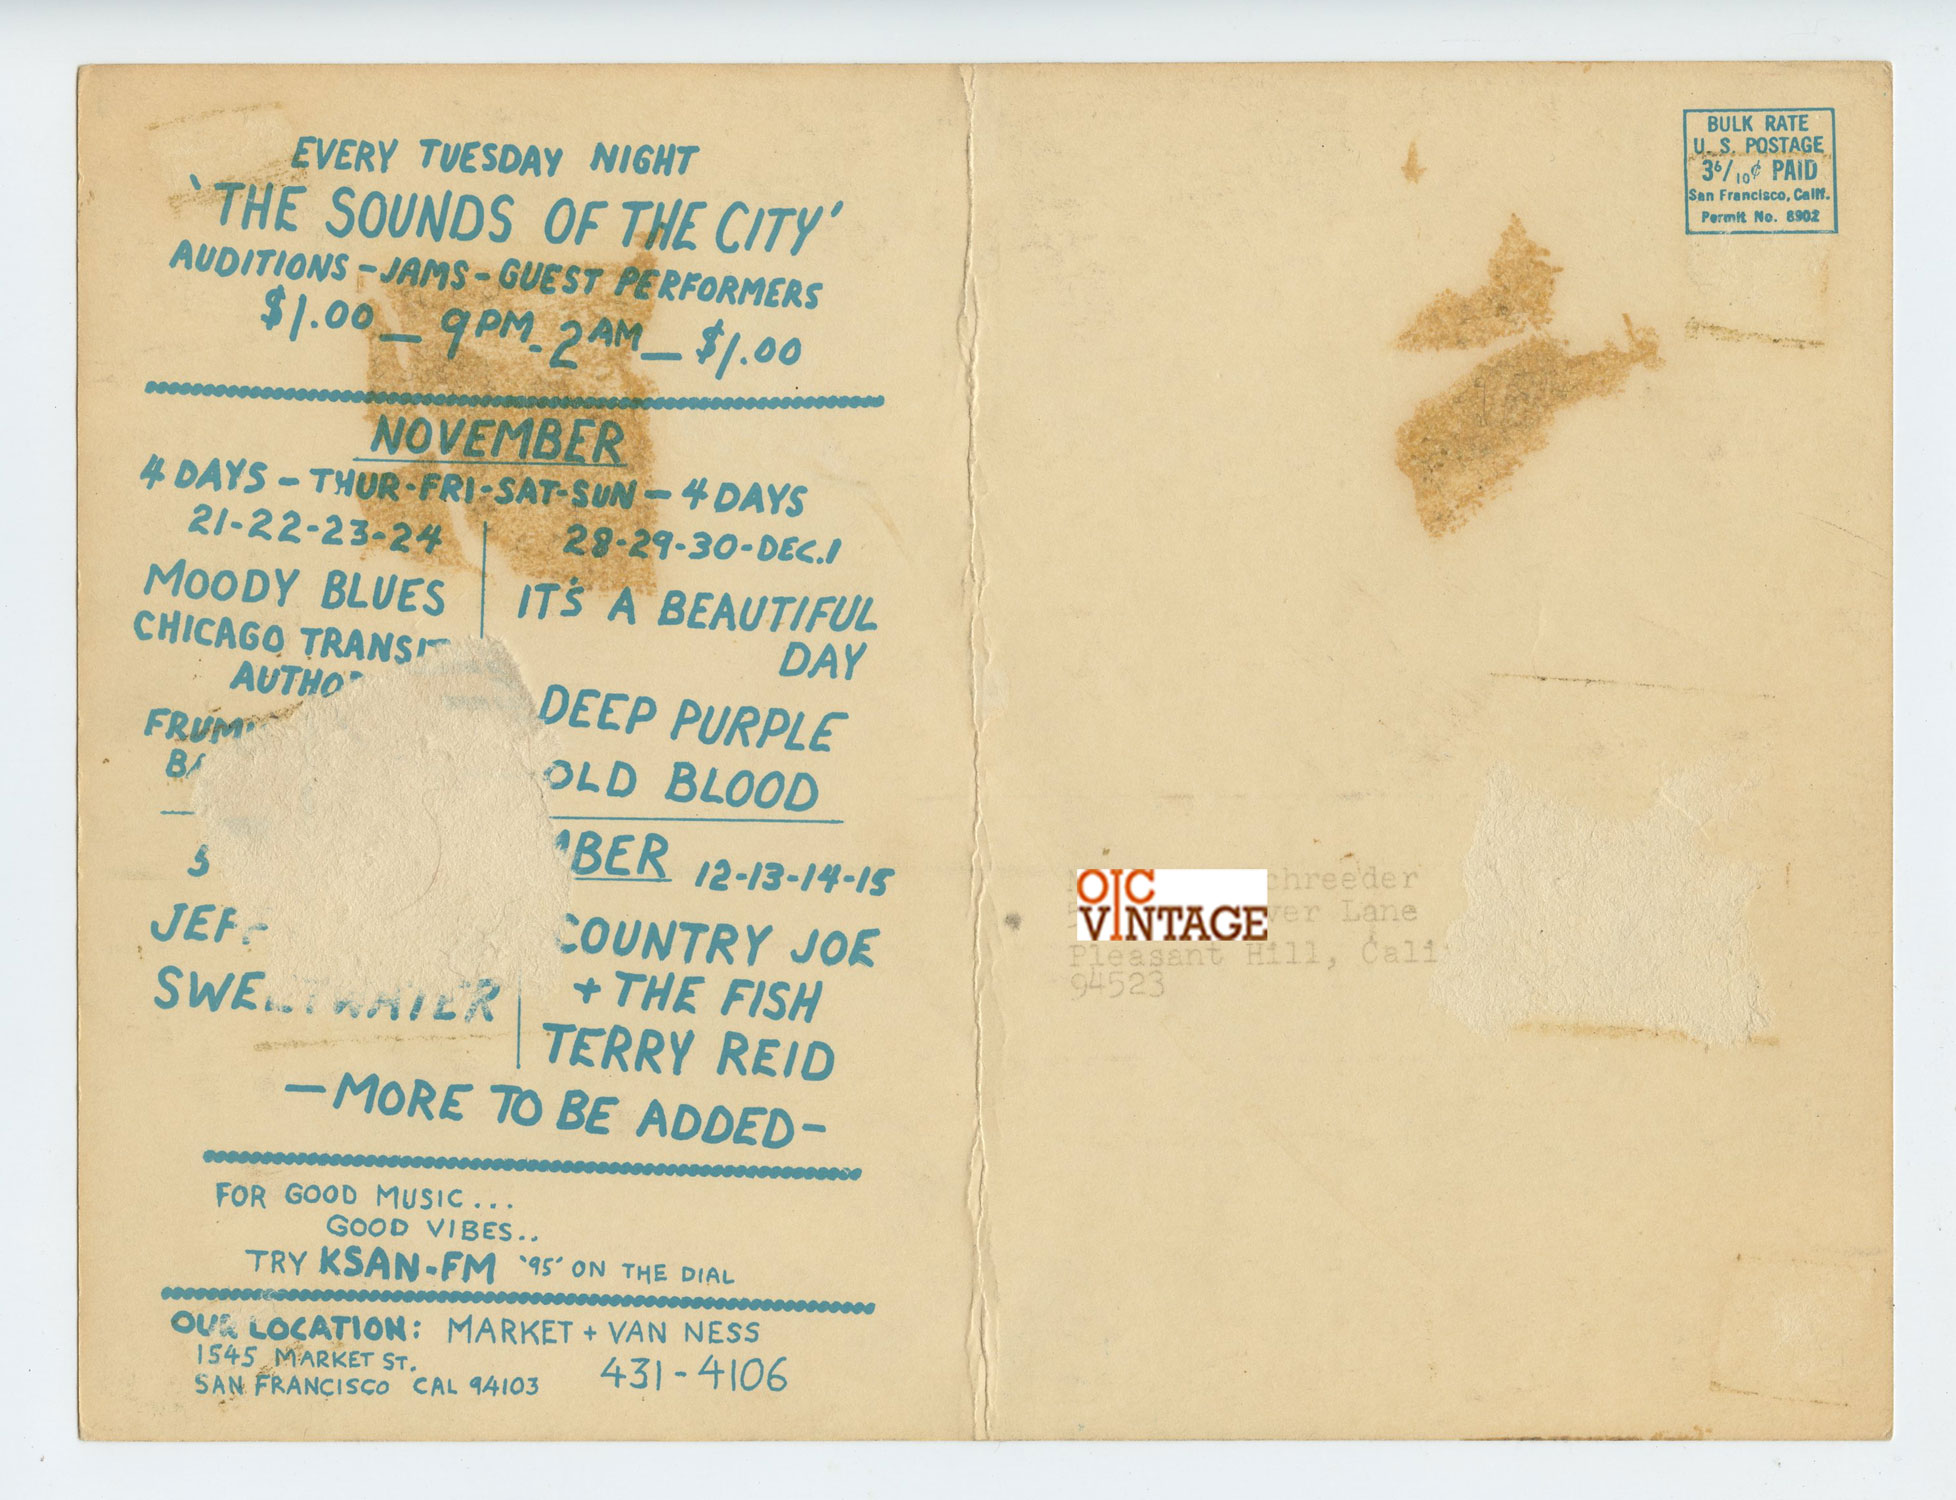 EVERY TUESDAY NIGHT
'THE SOUNDS OF THE CITY'
AUDITIONS - JAMS - GUEST PERFORMERS
$1.00 — 9 PM - 2 AM — $1.00
NOVEMBER
4 DAYS - THUR-FRI-SAT-SUN - 4 DAYS
21-22-23-24
MOODY BLUES
CHICAGO TRANSIT
28-29-30-DEC.1
IT'S A BEAUTIFUL
DAY
DEEP PURPLE
OLD BLOOD
BER
JEF
SWEETWATER
12-13-14-15
COUNTRY JOE
+ THE FISH
TERRY REID
—MORE TO BE ADDED—
FOR GOOD MUSIC...
GOOD VIBES..
TRY KSAN-FM '95' ON THE DIAL
OUR LOCATION: MARKET + VAN NESS
1545 MARKET ST.
SAN FRANCISCO CAL 94103
431-4106
BULK RATE
U. S. POSTAGE
3 6/10¢ PAID
San Francisco, Calif.
Permit No. 8902
OJC
VINTAGE
hreeder
ver Lane
Pleasant Hill, Cali
94523